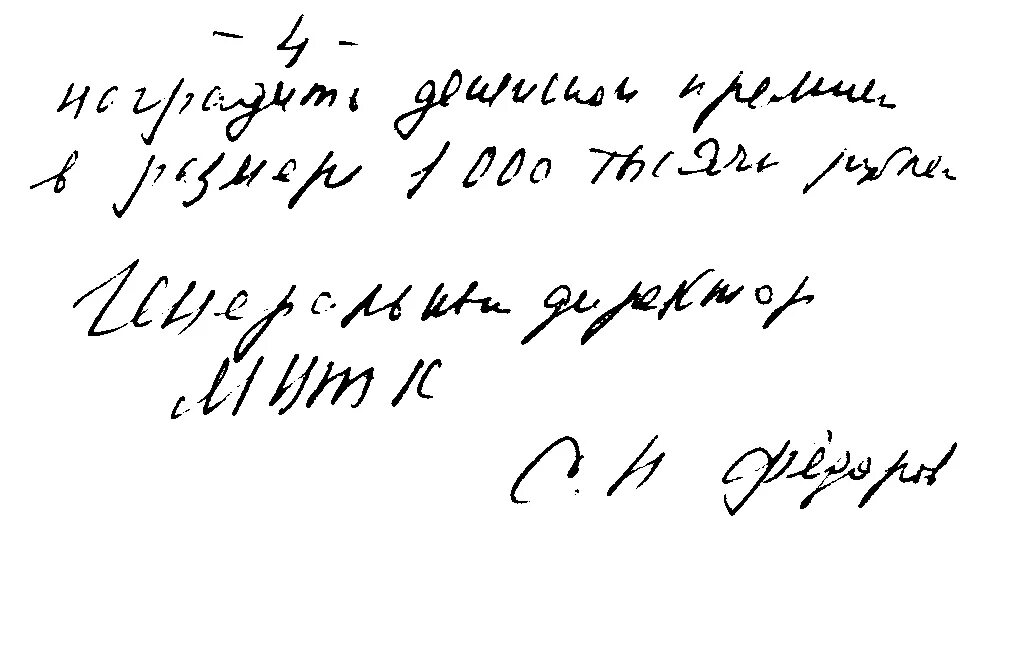 - 4 -
наградить денежной премией
в размере 1000 тысячи рублей
Генеральный директор
МНТК
С. Н Фёдоров